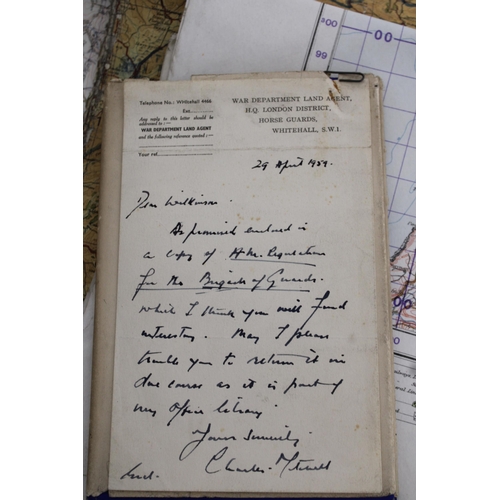 Telephone No.: Whitehall
Ext.
Any reply to this letter should be
addressed to:—
WAR DEPARTMENT LAND AGENT
and the following reference quoted:
Your ref.
WAR DEPARTMENT LAND AGENT,
H.Q. LONDON DISTRICT,
HORSE GUARDS,
WHITEHALL, S.W.1.
29 April 1959.
Dear Wilkinson.
As promised enclosed is
a copy of Regulations
for the Brigade of Guards.
which I think you will find
interesting. May I please
trouble you to return it in
due course as it is part of
my office library.
Yours sincerely
Charles
Encl.
99
00
00